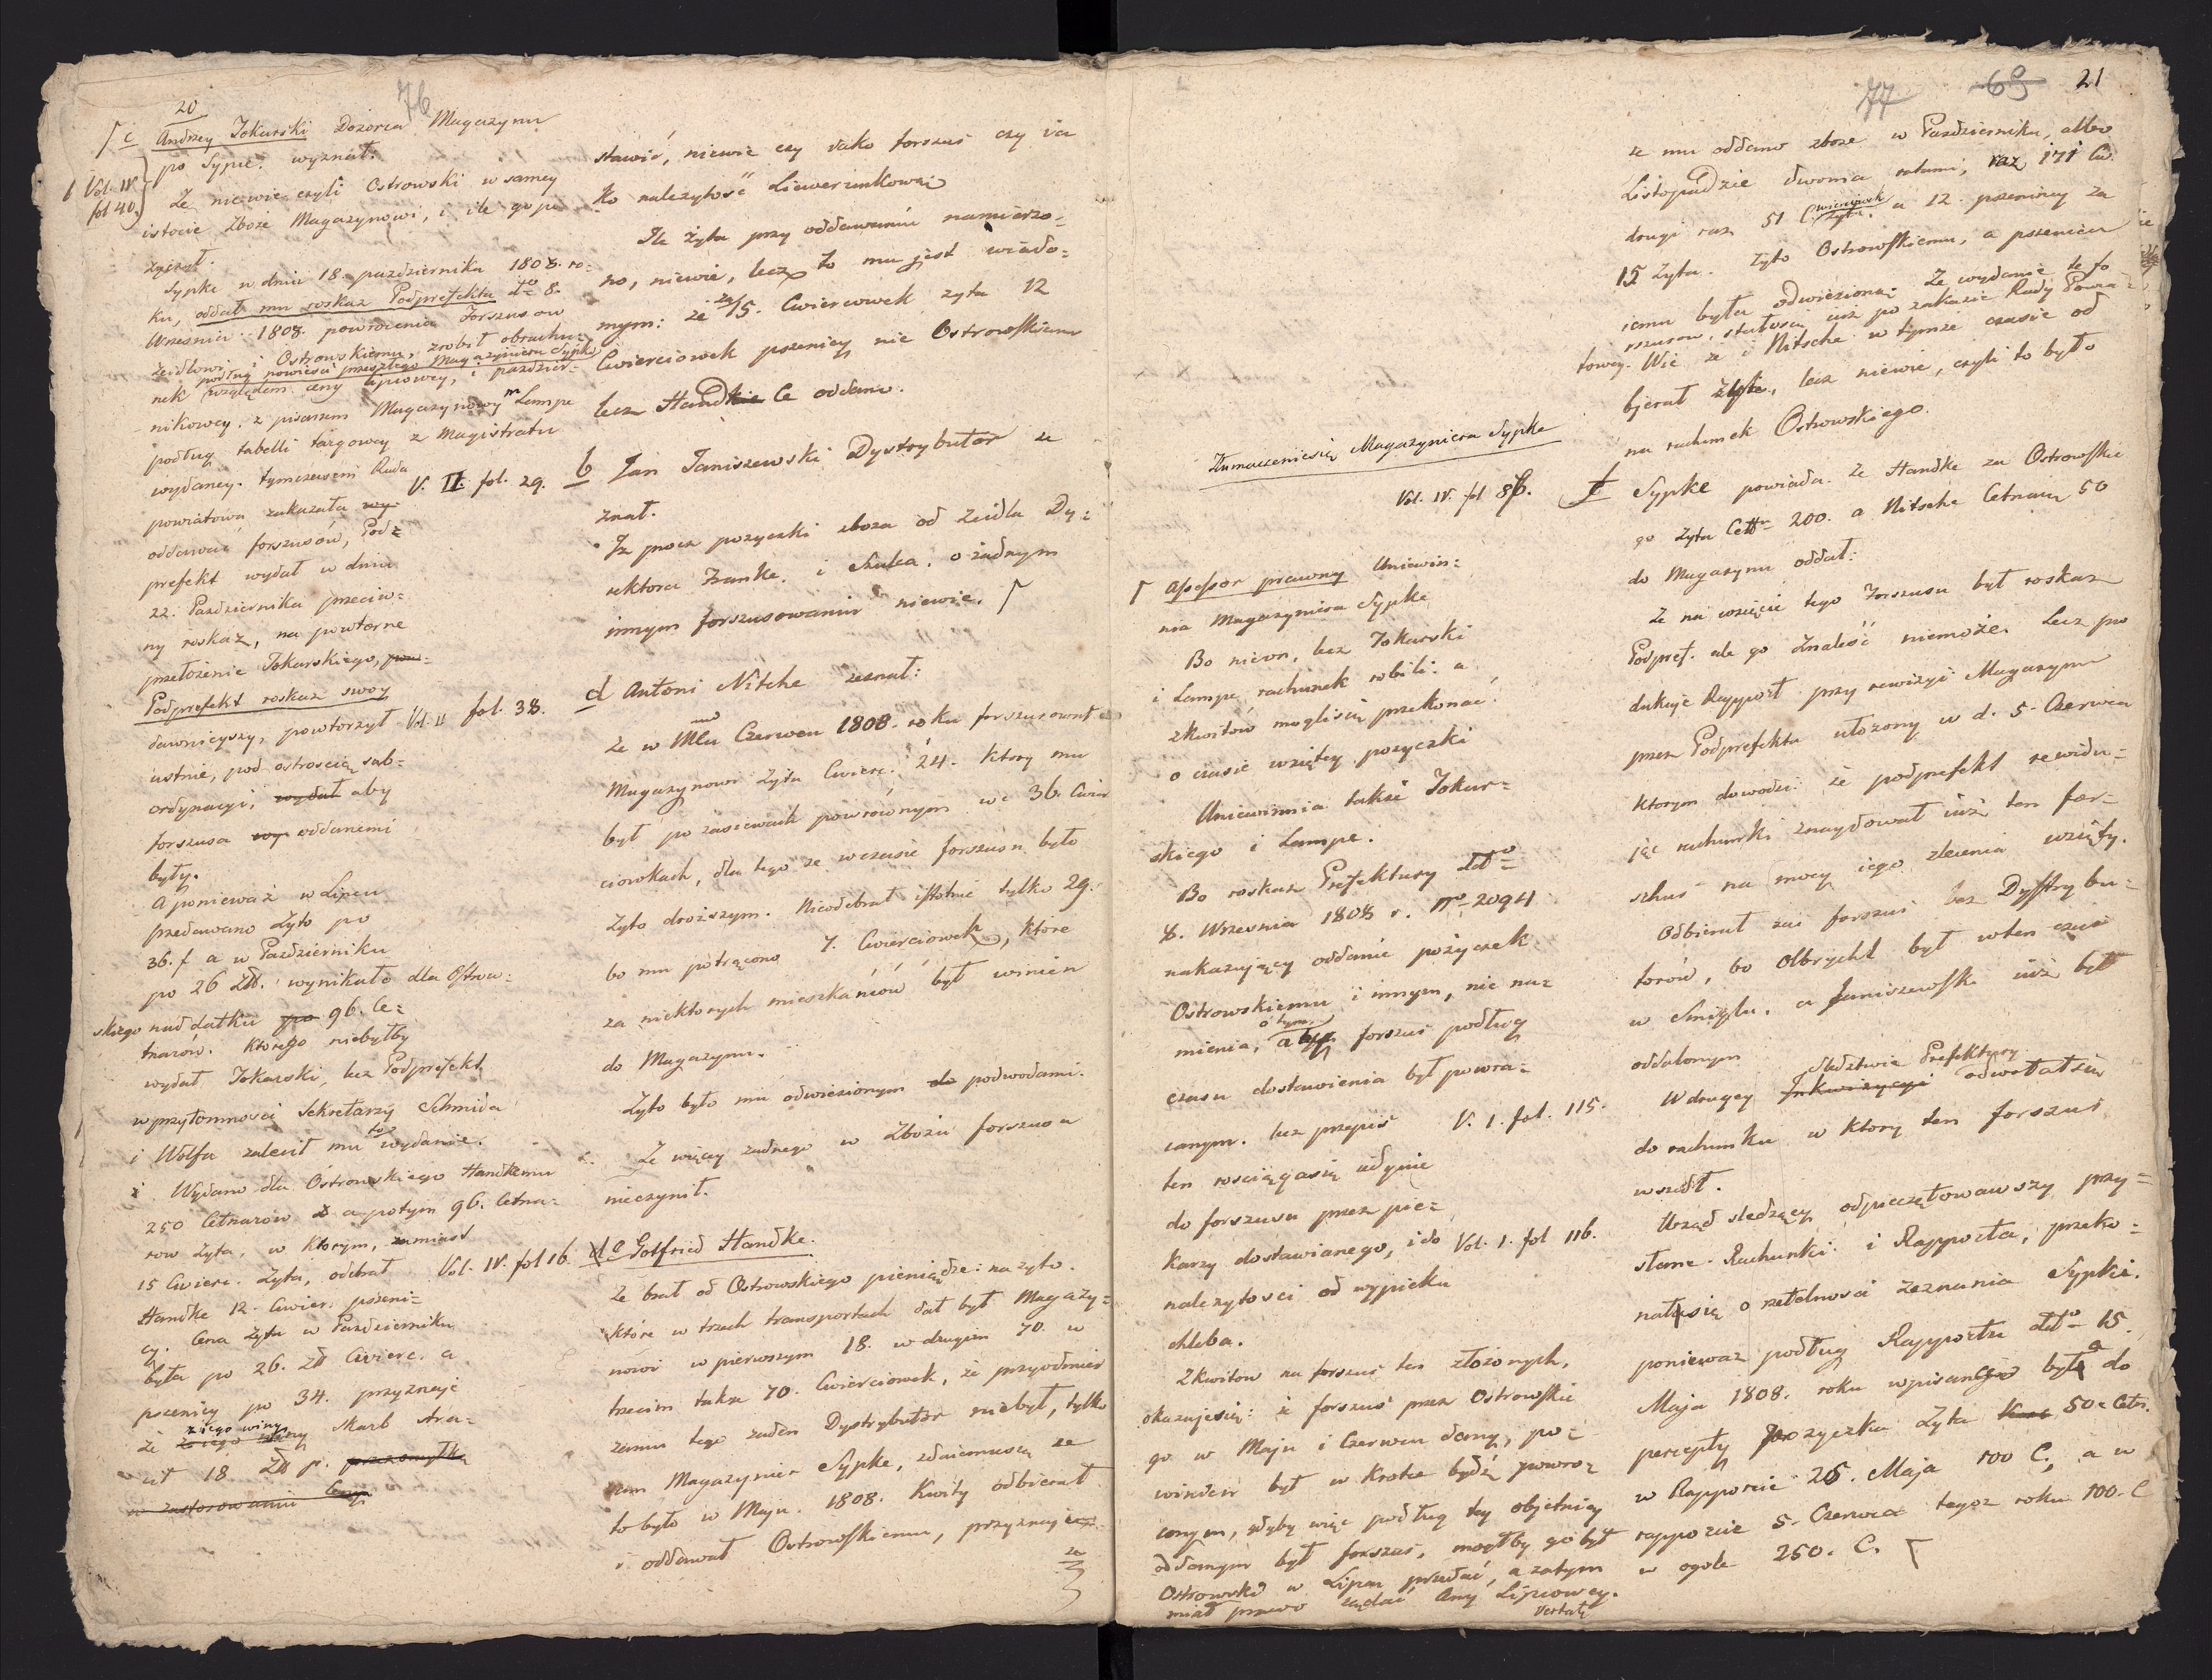 20
76
⌈ c Andrzey Tokarski Dozorca Magazynu
po Sypce. wyznał:
Vol. IV.
fol 40.
Że niewie czyli Ostrowski w samey
istocie Zboże Magazynowi, i ile go po
życzył.
Sypke w dniu 18. pazdziernika 1808. ro-
ku, oddał mu roskaz Podprefekta dto 8.
Wrzesnia 1808. powrocenia Forszusow
Zeidlowi i Ostrowskiemu, zrobił obrachu-
podług powiesci przeszłego Magazyniera Sypki
nek względem ceny lipcowey, i pazdzier-
nikowey, z pisarzem Magazynowym Lampe
podług tabelli targowey z Magistratu
wydaney. tymczasem Rada
powiatowa zakazała wy-
oddawać forszusów, Pod-
prefekt wydał w dniu
22. Pazdziernika przeciw-
ny roskaz, na powtorne
przełożenie Tokarskiego,
Podprefekt roskaz swoy
dawnieyszy, powtorzył
ustnie, pod ostroscią sub-
ordynacyi, wydał aby
forszusa wy- oddanemi
były.
A ponieważ w Lipcu
przedawano Żyto po
36. f a w Pazdzierniku
po 26 Zł. wynikało dla Ostrow-
skiego naddatku po 96. Ce-
tnarów. Ktorego niebyłby
wydał Tokarski, lecz Podprefekt
w przytomnosci Sekretarzy Schmida
i Wolfa zalecił mu to wydanie.
i Wydano dla Ostrowskiego Handkemu
250 Cetnarow a potym 96. Cetna-
row Żyta, w Ktorym, zamiast
15 Cwierc. Żyta, odebrał
Handke 12. Cwier. pszeni-
cy. Cena Żyta w Pazdzierniku
była po 26. Zł Cwierc. a
pszenicy po 34. przyznaie
z iego winy
że skarb stra-
cił 18 Zł p. przezomyłkę
w zastosowaniu Ceny
stawić, niewie czy iako forszus czy ia
ko należytość Liwerunkową
Ile żyta przy oddawaniu namierzo-
no, niewie, lecz to mu jest wiado-
mym: że za 15. Cwierciowek żyta 12
Cwierciowek pszenicy nie Ostrowskiemu
lecz Handke Ce oddano.
V. II. fol. 29. b Jan Janiszewski Dystrybutor ze
znał.
Iz procz pozyczki zboza od Zeidla Dy-
rektora Franke. i Szulca. o żadnym
innym forszusowaniu niewie. ⌈
Vol. II fol. 38. d Antoni Nitche zeznał:
Że w Mcu Czerwcu 1808. roku forszusował
Magazynowi Żyta Cwierc. 24. Ktory mu
był po zasiewach powrównym we 36. Cwier
ciowkach, dla tego że w czasie forszusu było
Żyto droższym. Nieodebrał istotnie tylko 29.
bo mu potrącono 7. Cwierciowek, które
za niektorych mieszkańców był winien
do Magazynu.
Żyto było mu odwiezionym do podwodami.
Że więcy żadnego w Zbożu forszusu
nieczynił.
Vol. IV. fol 16. e Gotfried Handke.
Że brał od Ostrowskiego pieniądze na żyto.
które w trzech transportach dał był Magazy-
nowi w pierwszym 18. w drugim 70. w
trzecim także 70. Cwierciowek, że przyodmie-
rzaniu tego żaden Dystrybutor niebył, tylko
sam Magazynier Sypke, zdaiemusię ze
to było w Maju. 1808. Kwity odbierał
i oddawał Ostrowskiemu, przyznaje
ze
77 69 21
Tłumaczeniesię Magazyniera Sypke
Vol. IV. fol 86.
⌈ Assessor prawny Uniewin-
nia Magazyniera Sypke
Bo nieon, lecz Tokarski
i Lampe rachunek robili. a
zkwitów moglisię przekonać
o czasie wziętey pozyczki
Uniewinnia także Tokar-
skiego i Lampe.
Bo roskaz Prefektury ddto
8. Wrzesnia 1808 r. Nro 2094
nakazujący oddanie pożyczek
Ostrowskiemu i innym, nie na-
o tym
mienia, aby forszus podług
czasu dostawienia był powra-
canym. lecz przepis V. 1. fol. 115.
ten rosciągasię iedynie
do forszusu przez pie-
karzy dostawianego, i do Vol. 1. fol 116.
należytosci od wypieku
chleba.
Zkwitow na forszus ten złożonych,
okazujesię: że forszus przez Ostrowskie
go w Maju i Czerwcu dany, po-
winien był w krotce bydź powro-
conym, gdyby więc podług tey objetnicy
oddanym był forszus, mogłby go był
Ostrowski w Lipcu przedać, a zatym
miał prawo rządać Ceny Lipcowey.
Vertatur
ze mu oddano zboze w Pazdzierniku, albo
Listopadzie dwoma ratami, raz 171 Cw.
drugi raz 51 Cwierciowek żyta. a 12. pszenicy za
15 Żyta. Żyto Ostrowskiemu, a pszenica
iemu była odwieziona; Że wydanie te fo
rszusow, stałosię iuż po zakazie Rady Powia-
towey. Wie że i Nitsche w tymże czasie od
bjerał zboże, lecz niewie, czyli to było
na rachunek Ostrowskiego.
f Sypke powiada. że Handke za Ostrowskie
go Żyta Cettn 200. a Nitsche Cetnary 50
do Magazynu oddał:
Ze na wzięcie tego Forszusu był roskaz
Podpref. ale go znaleść niemoże. Lecz pro
dukuje Rapport przy rewizyi Magazynu
przez Podprefekta ułożony w d. 5. Czerwca
Ktorym dowodzi: że podprefekt rewidu-
jąc rachunki znaydował iuż ten for-
szus na mocy iego zlecenia wzięty.
Odbierał zaś forszus bez Dystrybu-
torów, bo Olbrycht był wten czas
w Smiglu, a Janiszewski iuż był
oddalonym
sledztwie Prefektury
Wdrugey Inkwizycyi odwołałsię
do rachunku w ktory ten forszus
wszedł.
Urząd sledzący, odpieczętowawszy przy-
słane Rachunki i Rapporta, przeko-
nałsię o rzetelnosci zeznania Sypki.
ponieważ podług Rapportu ddto 15.
Maja 1808. roku wpisana była do
percepty Pozyczka Żyta 50. Cetn.
w Rapporcie 26. Maja 100 C, a w
rapporcie 5. Czerwca tegoż roku 100. C
w ogole 250. C. ⌈